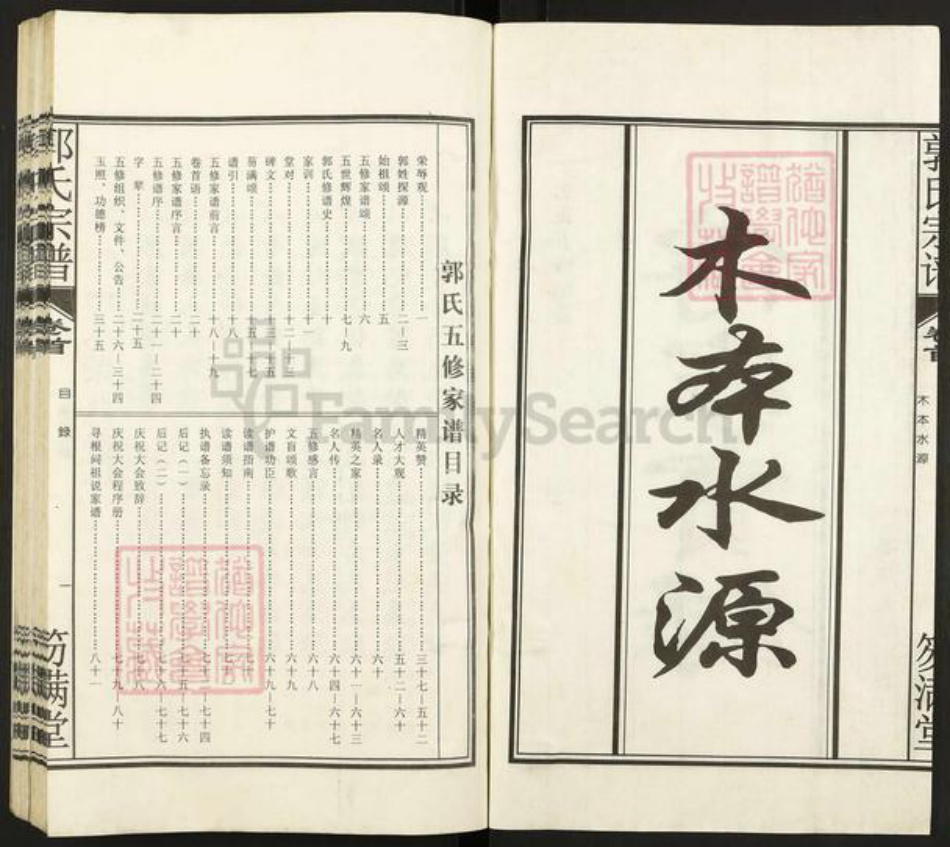 木本水源
郭氏宗谱
卷首
木本水源
笏满堂
郭氏五修家谱目录
荣辱观 一
郭姓探源 二—三
始祖颂 五
五修家谱颂 六
五世辉煌 七—九
郭氏修谱史 十
家训 十一
堂对
碑文 十三—十五
笏满颂
谱引 十八
五修家谱前言 十八—十九
卷首语 二十
五修家谱序言 二十
五修谱序 二十一—二十四
字辈 二十五
五修组织、文件、公告 二十六—三十四
玉照、功德榜 三十五
精英赞 三十七—五十二
人才大观 五十二—六十
名人录 六十
精英之家 六十一—六十三
名人传 六十四—六十七
五修感言 六十八
文盲颂歌 六十九
护谱功臣 六十九—七十
读谱指南
读谱须知
执谱备忘录 七十四
后记(一) 七十五—七十六
后记(二) 七十六—七十七
庆祝大会致辞 七十八
庆祝大会程序册 七十九—八十
寻根问祖说家谱 八十一
郭氏宗谱
卷首
目录
一
笏满堂
FamilySearch